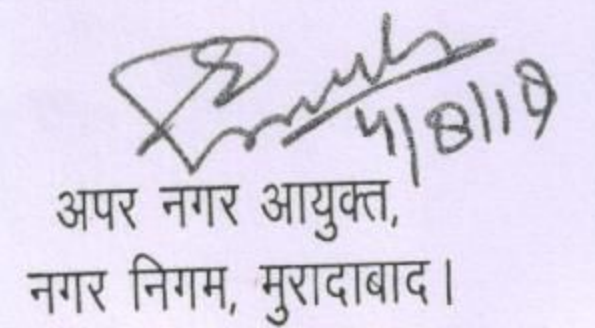 4/8/19
अपर नगर आयुक्त,
नगर निगम, मुरादाबाद।